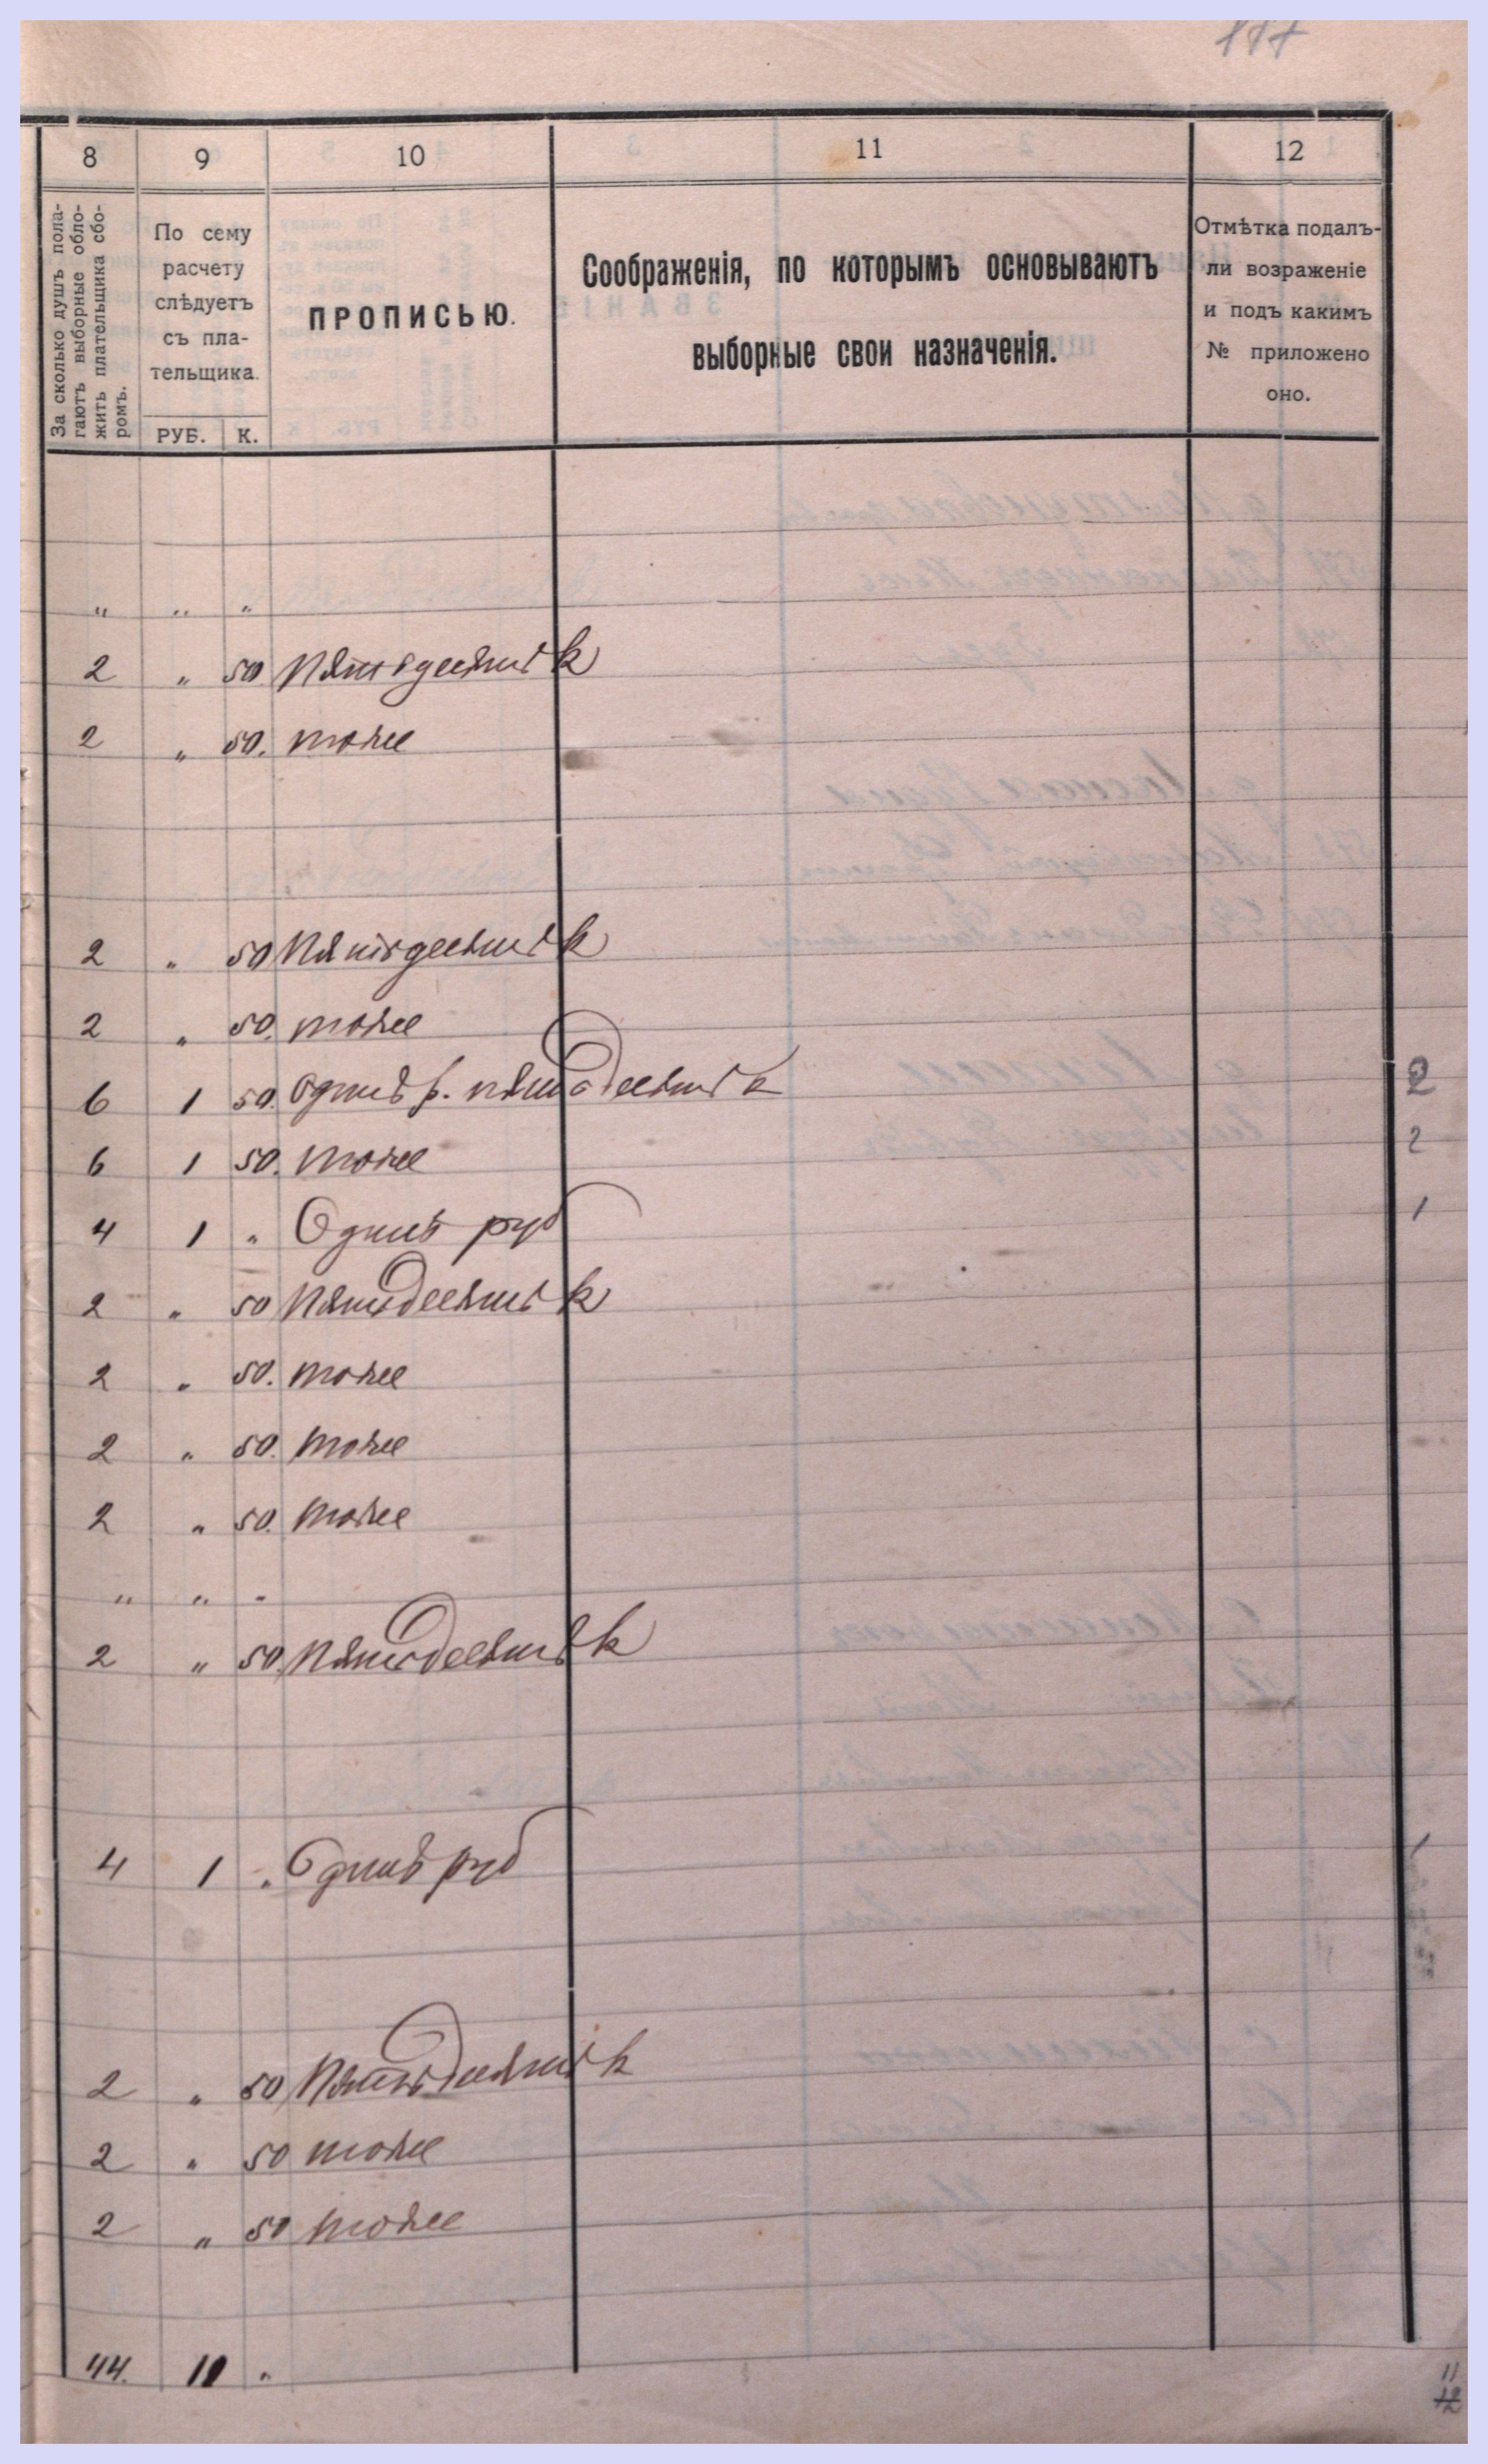 117
8 9 10 11 12
За сколько душъ пола-
гаютъ выборные обло-
жить плательщика сбо-
ромъ.
По сему
расчету
слѣдуетъ
съ пла-
тельщика.
РУБ. К.
ПРОПИСЬЮ.
Соображенія, по которымъ основываютъ
выборные свои назначенія.
Отмѣтка подалъ-
ли возраженіе
и подъ какимъ
№ приложено
оно.
" " "
2 " 50 Пятьдесятъ к
2 " 50. тоже
2 " 50 Пятьдесятъ к
2 " 50. тоже
6 1 50. Одинъ р. пятьдесятъ к 2
6 1 50. тоже 2
4 1 " Одинъ руб 1
2 " 50 Пятьдесятъ к
2 " 50. тоже
2 " 50. тоже
2 " 50. тоже
" " "
2 " 50. Пятьдесятъ к
4 1 " Одинъ руб 1
2 " 50 Пятьдесятъ к
2 " 50 тоже
2 " 50 тоже
44. 10 "
11
12